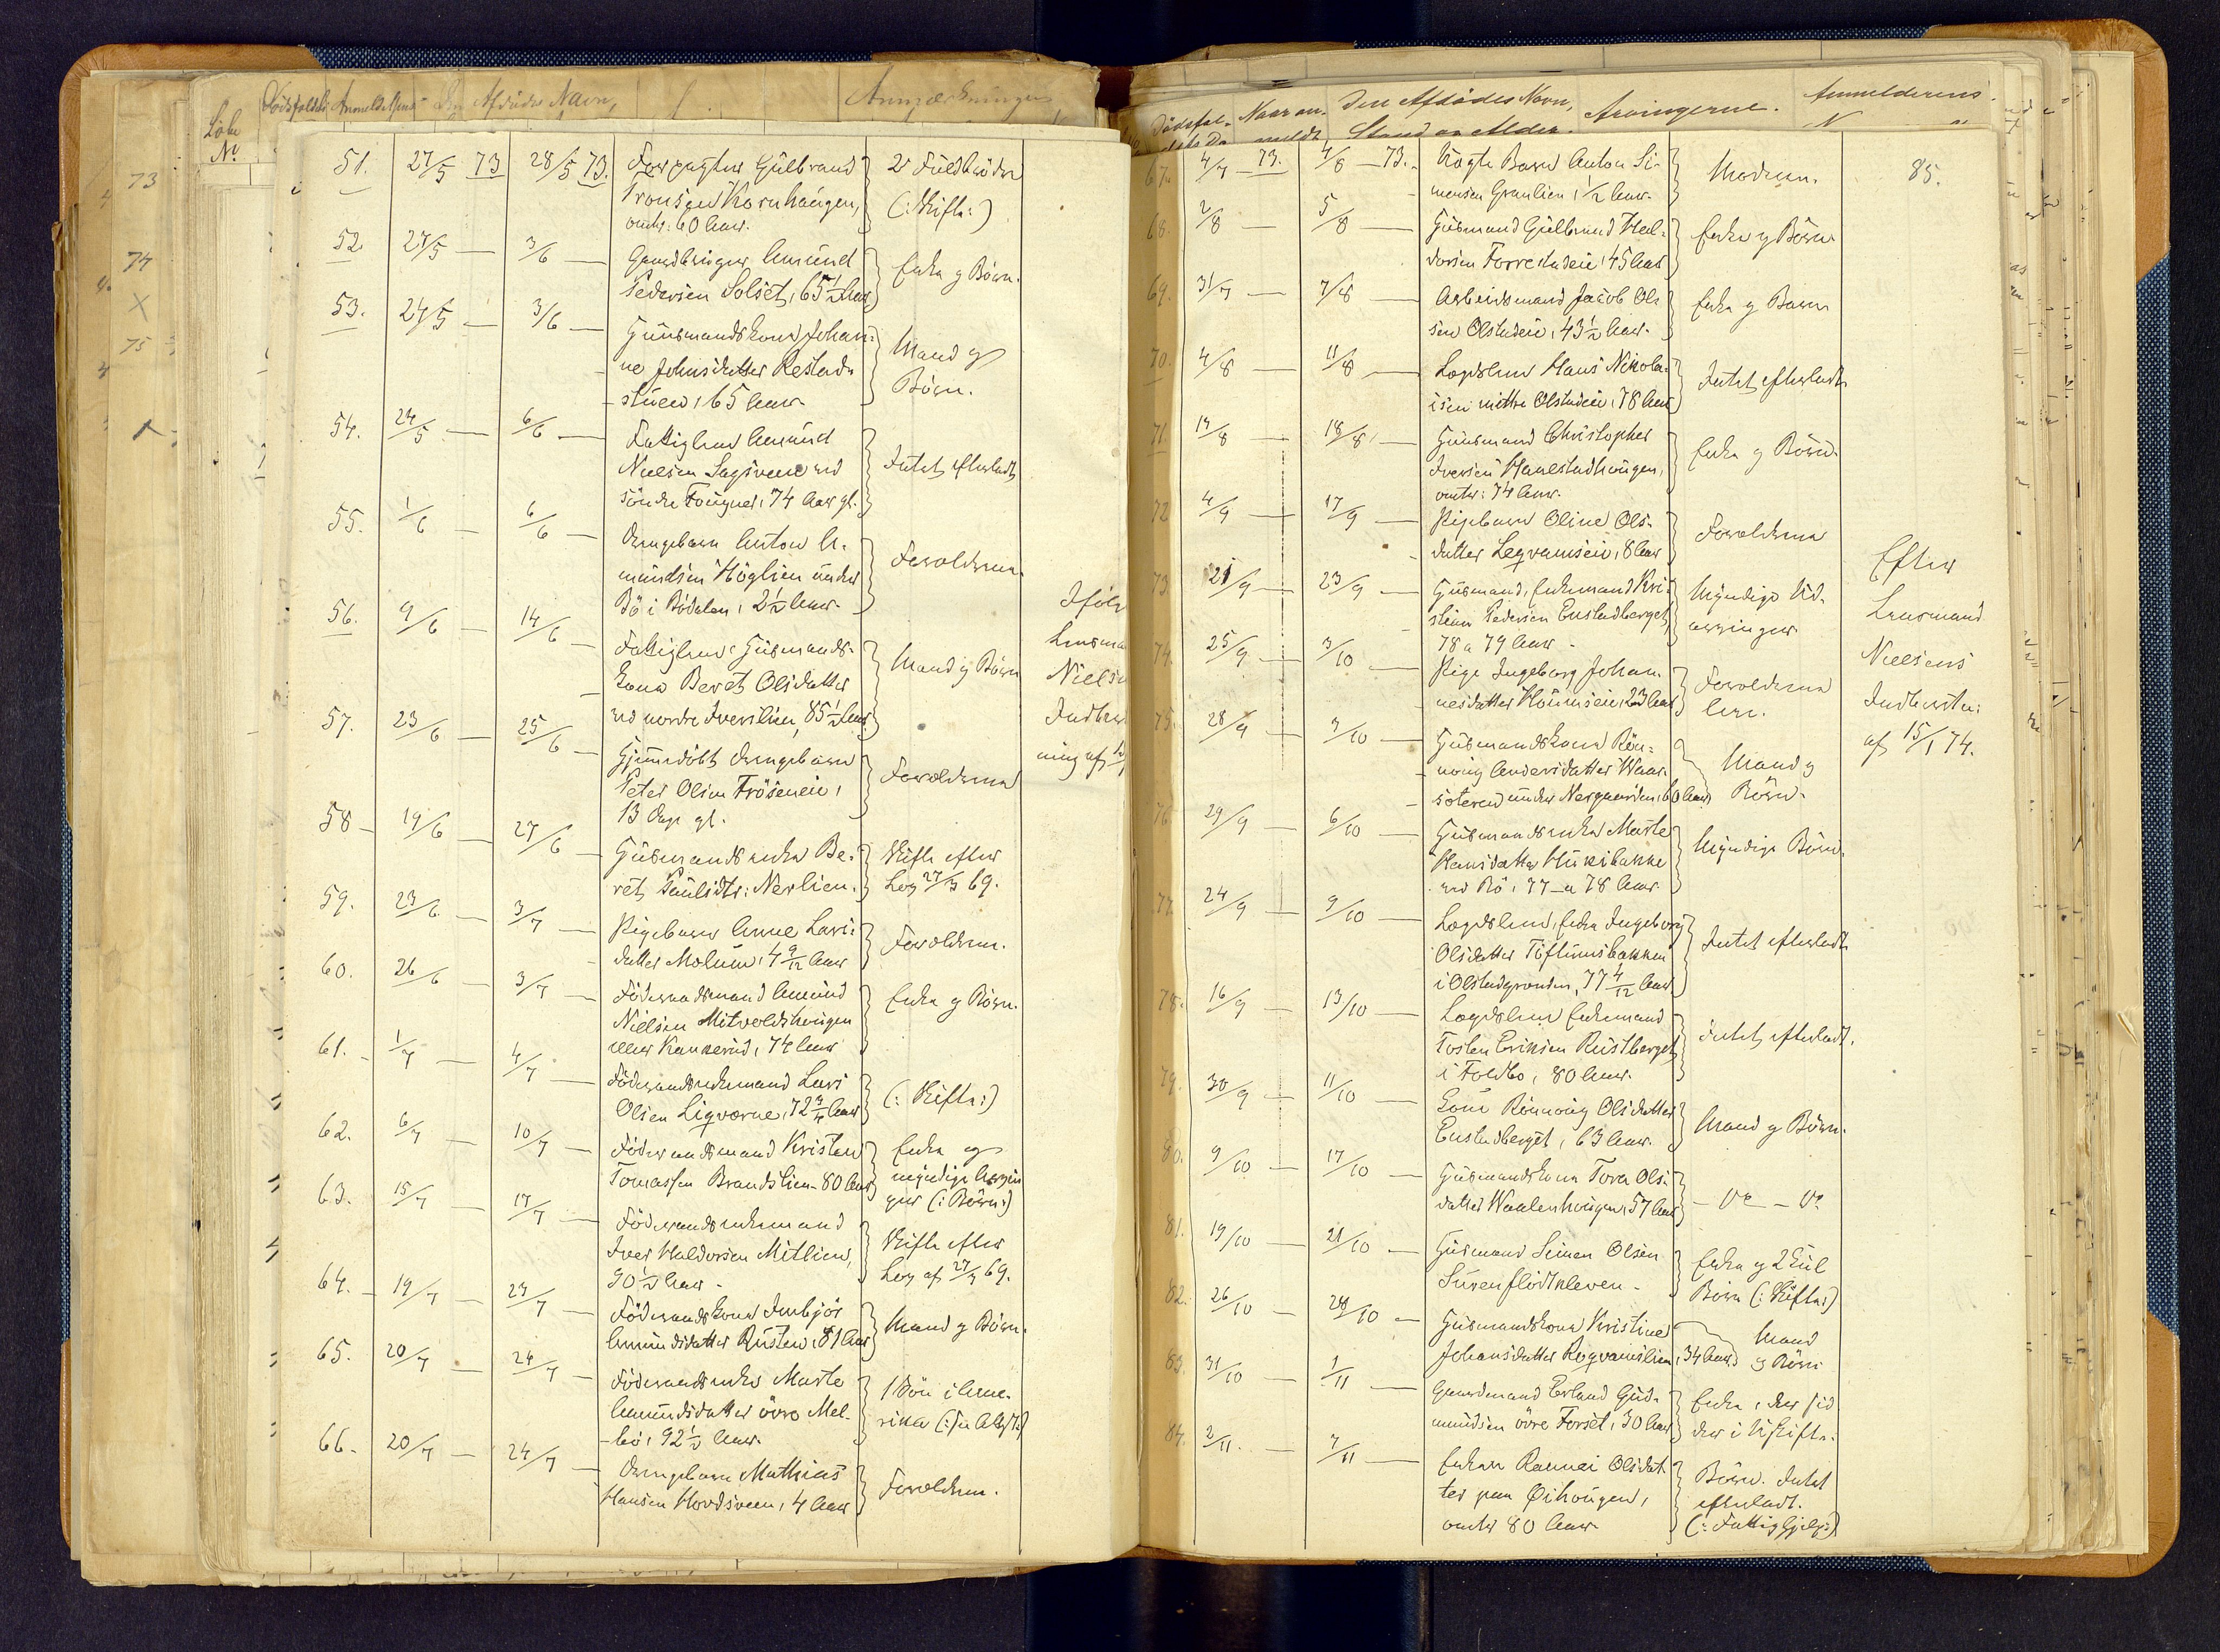 Løbe
No
Dødsfaldets Anmeldelsens Den Afdødes Navn,
Anmærkninger
51. 27/5 73 28/5 73. Forpagter Gulbrand
Tronsen Kornhaugen,
omtr: 60 Aar.
2 Fuldbrödre
(: Skifte:)
52. 27/5 — 3/6 — Gaardbruger Amund
Pedersen Solset, 65 1/2 Aar
Enke og Börn.
53. 24/5 — 3/6 — Huusmandskone Johan-
ne Johnsdatter Kestad-
stuen, 65 Aar.
Mand og
Börn.
54. 24/5 — 6/6 — Fattiglem Amund
Nielsen Sagsveen ved
söndre Fougner, 74 Aar gl.
Intet efterladt
55. 1/6 — 6/6 — Drengebarn Anton A-
mundsen Höglien under
Bö i Bödalen, 2 1/2 Aar.
Forældrene.
56. 9/6 — 14/6 — Fattiglem Husmands-
kone Beret Olsdatter
ved nordre Iverslien, 85 1/2 Aar.
Mand og Börn
57. 23/6 — 25/6 — Hjemmedöbt Drengebarn
Peter Olsen Fröseneie,
13 Dage gl.
Forældrene
58 — 19/6 — 27/6 — Husmandsenke Be-
ret Paulsdtr: Nerlien.
Skifte efter
Lov 27/3 69.
59. 23/6 — 3/7 — Pigebarn Anne Lars-
datter Molum, 4 9/12 Aar
Forældrene.
60. 26/6 — 3/7 — Föderaadsmand Amund
Nielsen Mitvoldshougen
eller Kankerud, 74 Aar
Enke og Börn.
61. 1/7 — 4/7 — Föderaadsenkemand Lars
Olsen Liqvarne, 72 3/4 Aar
(: Skifte:)
62. 6/7 — 10/7 — Föderaadsmand Kristen
Tomassen Brandslien 80 Aar
Enke og
myndige Arvin-
ger (: Börn:)
63. 15/7 — 17/7 — Föderaadsenkemand
Iver Haldorsen Mitlien,
90 1/2 Aar.
Skifte efter
Lov af 27/3 69.
64. 19/7 — 23/7 — Föderaadskone Imbjör
Amundsdatter Rusten, 81 Aar
Mand og Börn.
65. 20/7 — 24/7 — Föderaadsenke Marte
Amundsdatter övre Mel-
bö, 92 1/2 Aar.
1 Sön i Ame-
rika
66. 20/7 — 24/7 — Drengebarn Mathias
Hansen Hovdsveen, 4 Aar
Forældrene.
Ifölge
Lensma
Nielse
Indber
ning af
Dødsfal- Naar an- Den Afdødes Navn, Arvingerne. Anmelderens
meldt Stand og Alder.
67. 4/7 — 73. 4/8 — 73. Uægte Barn Anton Si-
mensen Granlien, 1/2 Aar.
Moderen.
85.
68. 2/8 — 5/8 — Husmand Gulbrand Hal-
dorsen Forrestadeie, 45 Aar
Enke og Börn.
69. 31/7 — 7/8 — Arbeidsmand Jacob Ol-
sen Olstadeie, 43 1/2 Aar.
Enke og Barn
70. 4/8 — 11/8 — Lægdslem Hans Nikola-
isen mittre Olstadeie, 78 Aar
Intet efterladt
71. 14/8 — 18/8 — Huusmand Christopher
Iversen Hanestadhougen,
omtr: 74 Aar.
Enke og Börn.
72 4/9 — 17/9 — Pigebarn Oline Ols-
datter Leqvamseie, 8 Aar
Forældrene
73. 21/9 — 23/9 — Husmand, Enkemand Kri-
stian Pedersen Enstadberget,
78 a 79 Aar.
Myndige Ud-
arvinger
Efter
Lensmand
Nielsens
Indberetn:
af 15/1 74.
74. 25/9 — 3/10 — Pige Ingeborg Johan-
nesdatter Hounseie, 23 Aar
Forældrene
75. 28/9 — 3/10 — Husmandskone Rön-
noug Andersdatter Waar-
soteren under Nergaarden, 60 Aar
Mand og
Börn.
76. 29/9 — 6/10 — Husmandsenke Marte
Hansdatter Musibakke
ved Bö, 77 a 78 Aar
Myndige Börn.
77. 24/9 — 9/10 — Lægdslem, Enke Ingeborg
Olsdatter Töftumsbakken
i Olstadgrenden, 77 4/12 Aar
Intet efterladt
78. 16/9 — 13/10 — Lægdslem Enkemand
Tosten Eriksen Rustberget
i Foldbo, 80 Aar.
Intet efterladt.
79. 30/9 — 11/10 — Kone Rönnoug Olsdatter
Enstadberget, 63 Aar.
Mand og Börn.
80. 9/10 — 17/10 — Husmandskone Tora Ols-
datter Waalenhougen, 57 Aar
— Do — Do
81. 19/10 — 21/10 — Husmand Simen Olsen
Surenflödtkleven.
Enke og 2 Kul
Börn (: Skifte:)
82. 26/10 — 28/10 — Husmandskone Kristine
Johansdatter Roqvamslien, 34 Aar
Mand
og Börn
83. 31/10 — 1/11 — Gaardmand Erland Gud-
mundsen övre Forset, 30 Aar
Enke, der sid-
der i Uskifte.
84. 2/11 — 7/11 — Enken Rannei Olsdat-
ter paa Öihougen,
omtr 80 Aar.
Börn. Intet
efterladt.
(: Fattighjelp:)